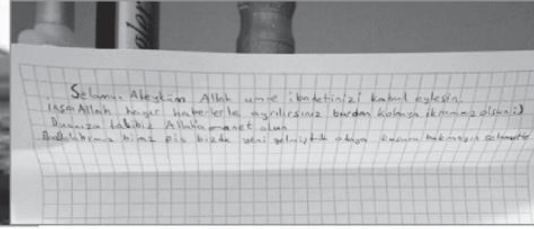 Selamun Aleyküm Allah umre ibadetinizi kabul eylesin
inşaAllah hayır haberlerle ayrılırsınız burdan kolanız ikramımız olsun :)
Duanıza talibiz Allaha emanet olun
biraz pis bizde yeni gelmiştik odaya kusura bakmayın